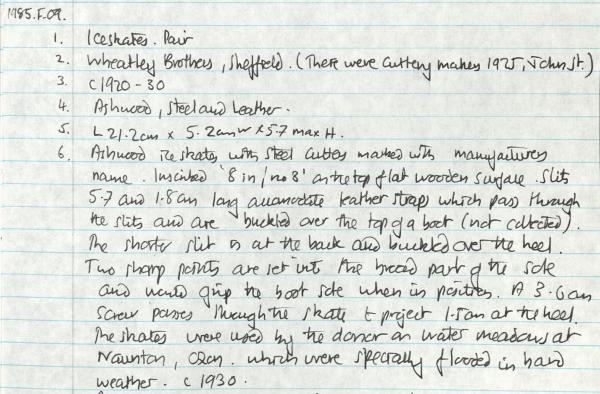 1985.F.09.
1. Iceskates. Pair
2. Wheatley Brothers, Sheffield. (There were Cutlery makers 1925, John St.)
3. c1920-30
4. Ashwood, steel and leather.
5. L 21.2cm x 5.2cm w x 5.7 max H.
6. Ashwood ice skates with steel cutters marked with manufacturers
name. Inscribed '8 in / no 8' on the top flat wooden surface. Slits
5.7 and 1.8cm long accomodate leather straps which pass through
the slits and are buckled over the top of a boot (not collected).
The shorter slit is at the back and buckled over the heel.
Two sharp points are set into the broad part of the sole
and would grip the boot sole when in position. A 3.6cm
screw passes through the skate to project 1.5cm at the heel.
The skates were used by the donor on water meadows at
Naunton, which were specially flooded in hard
weather. c 1930.